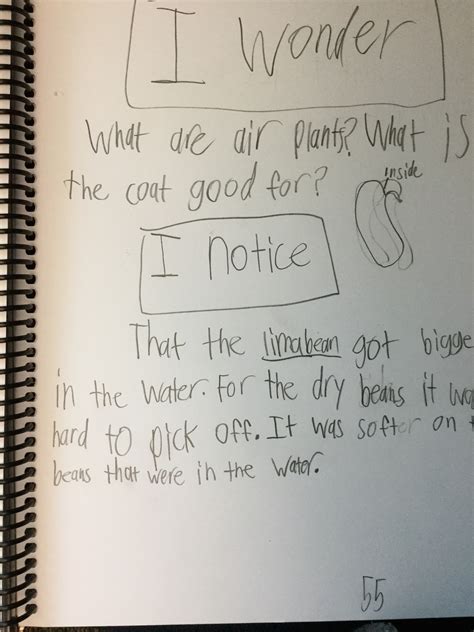 I wonder
What are air plants? What is
the coat good for?
inside
I notice
That the limabean got bigge
in the water. For the dry beans it wa
hard to pick off. It was softer on t
beans that were in the water.
55